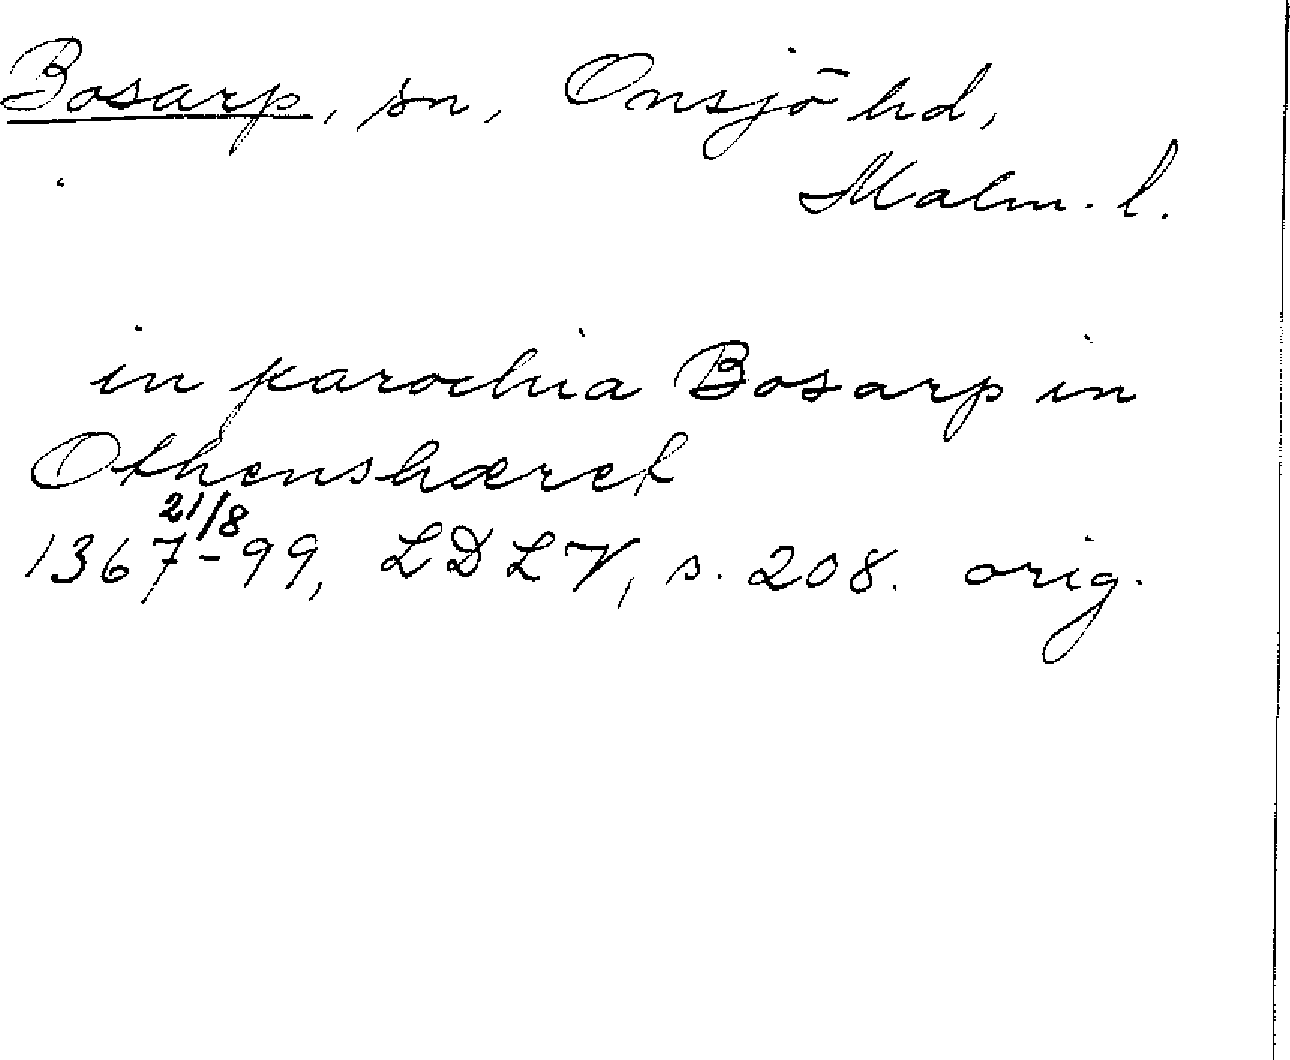 Bosarp, sn, Onsjö hd,
Malm. l.
in parochia Bosarp in
Othenshæret
1367 21/8 - 99, LDLV, s. 208. orig.